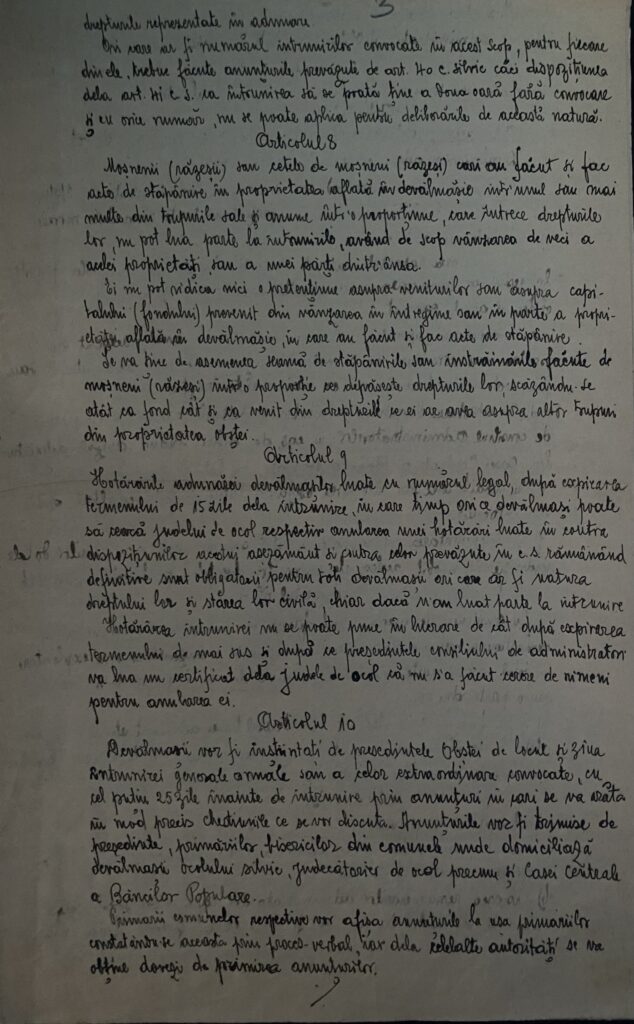 3
drepturile reprezentate în adunare
Ori care ar fi numărul întrunirilor convocate în acest scop, pentru fiecare
din ele, trebue făcute anunțurile prevăzute de art. 40 c. silvic căci dispozițiunea
dela art. 41 c. s. ca întrunirea să se poată ține a doua oară fară convocare
și cu orice număr, nu se poate aplica pentru deliberările de această natură.
Articolul 8
Moșnenii (răzeșii) sau cetele de moșneni (răzeși) cari au făcut și fac
acte de stăpânire în proprietatea aflată în devălmășie într'unul sau mai
multe din trupurile sale și anume într'o proporțiune, care întrece drepturile
lor, nu pot lua parte la întrunirile, având de scop vânzarea de veci a
acelei proprietăți sau a unei părți dintr'ânsa.
Ei nu pot ridica nici o pretențiune asupra veniturilor sau asupra capi-
talului (fondului) provenit din vânzarea în întregime sau în parte a propri-
etății aflată în devălmășie, în care au făcut și fac acte de stăpânire.
Se va ține de asemenea seamă de stăpânirile sau înstrăinările făcute de
moșneni (răzeși) într'o proporție ce depășește drepturile lor, scăzându-se
atât ca fond cât și ca venit din drepturile ce ei ar avea asupra altor trupuri
din proprietatea obștei.
Articolul 9
Hotărârile adunărei devălmașilor luate cu numărul legal, după expirarea
termenului de 15 zile dela întrunire, în care timp orice devălmaș poate
să ceară judelui de ocol respectiv anularea unei hotărâri luate în contra
dispozițiunilor acestui așezământ și contra celor prevăzute în c.s. rămânând
definitive sunt obligatorii pentru toti devălmașii ori care ar fi natura
dreptului lor și starea lor civilă, chiar dacă n'au luat parte la întrunire
Hotărârea întrunirei nu se poate pune în lucrare de cât după expirerea
termenului de mai sus și după ce președintele consiliului de administratori
va lua un certificat dela judele de ocol că nu s'a făcut cerere de nimeni
pentru anularea ei.
Articolul 10
Devălmașii vor fi înștiințati de președintele Obștei de locul și ziua
întrunirei generale anuale sau a celor extraordinare convocate, cu
cel puțin 25 zile înainte de întrunire prin anunțuri în cari se va arăta
în mod precis chestiunile ce se vor discuta. Anunțurile vor fi trimise de
președinte, primăriilor, bisericilor din comunele unde domiciliază
devălmașii ocolului silvic, judecătoriei de ocol precum și Casei Centrale
a Băncilor Populare.
Primarii comunelor respective vor afișa anunțurile la ușa primăriilor
constatându-se aceasta prin proces-verbal, iar dela celelalte autorități se va
obține dovezi de primirea anunțurilor.